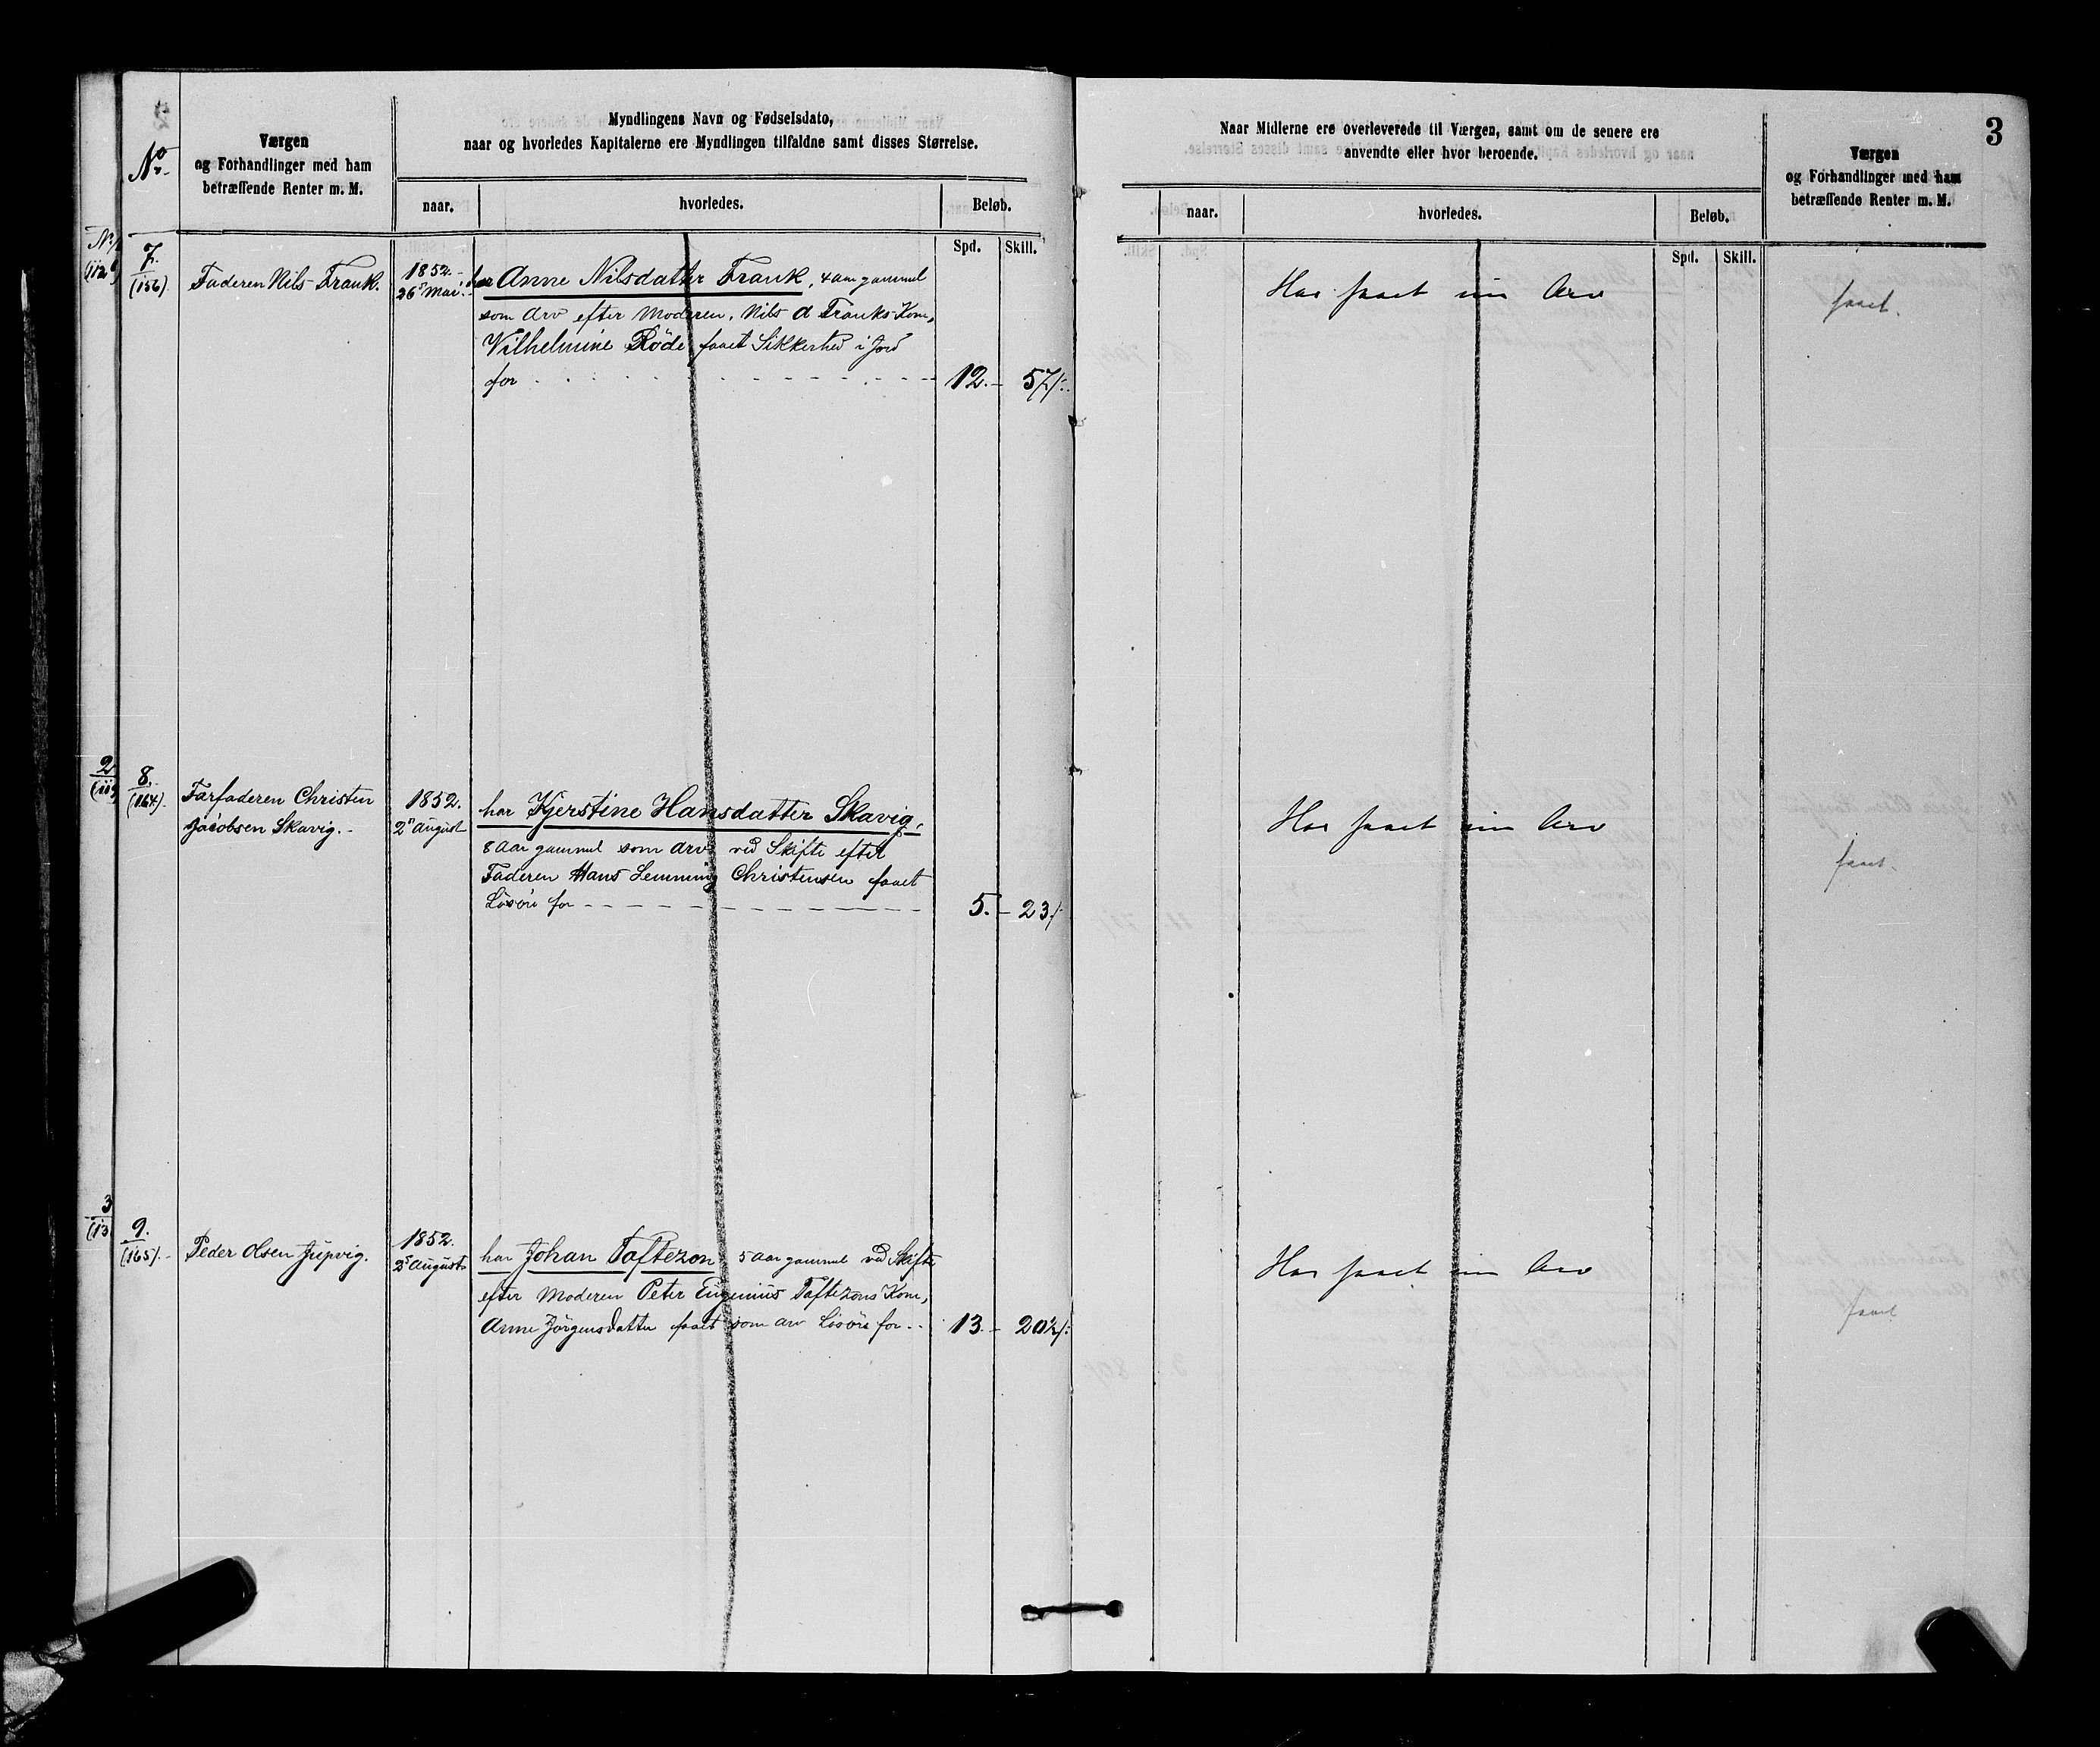 3
No.
Værgen
og Forhandlinger med ham
betræffende Renter m. M.
Myndlingens Navn og Fødselsdato,
naar og hvorledes Kapitalerne ere Myndlingen tilfaldne samt disses Størrelse.
naar.
hvorledes.
Beløb.
Spd. Skill.
Naar Midlerne ere overleverede til Værgen, samt om de senere ere
anvendte eller hvor beroende.
naar.
hvorledes.
Beløb.
Spd. Skill.
Værgen
og Forhandlinger med ham
betræffende Renter m. M.
7.
(156).
Faderen Nils Frank.
1852.-
26' Mai.
har Anne Nilsdatter Frank, 4 aar gammel
som Arv efter Moderen, Nils A Franks Kone,
Vilhelmine Röde, faaet Sikkerhed i Jord
for - - - 12. - 57/:
Har faaet sin Arv
faaet.
2
8.
(164).
Farfaderen Christen
Jacobsen Skavig.-
1852.
2' August
har Kjerstine Hansdatter Skavig,
8 Aar gammel som Arv ved Skifte efter
Faderen Hans Lemming Christensen faaet
Lösöre for - - - 5. - 23/:
Har faaet sin Arv
faaet.
3
(13
9.
(165).-
Peder Olsen Jupvig.
1852.
2' August
har Johan Taftezon 5 Aar gammel ved Skifte
efter Moderen Peter Eugenius Taftezons Kone,
Anne Jörgensdatter faaet som Arv Lösöre for - - 13. - 20½/:
Har faaet sin Arv
faaet